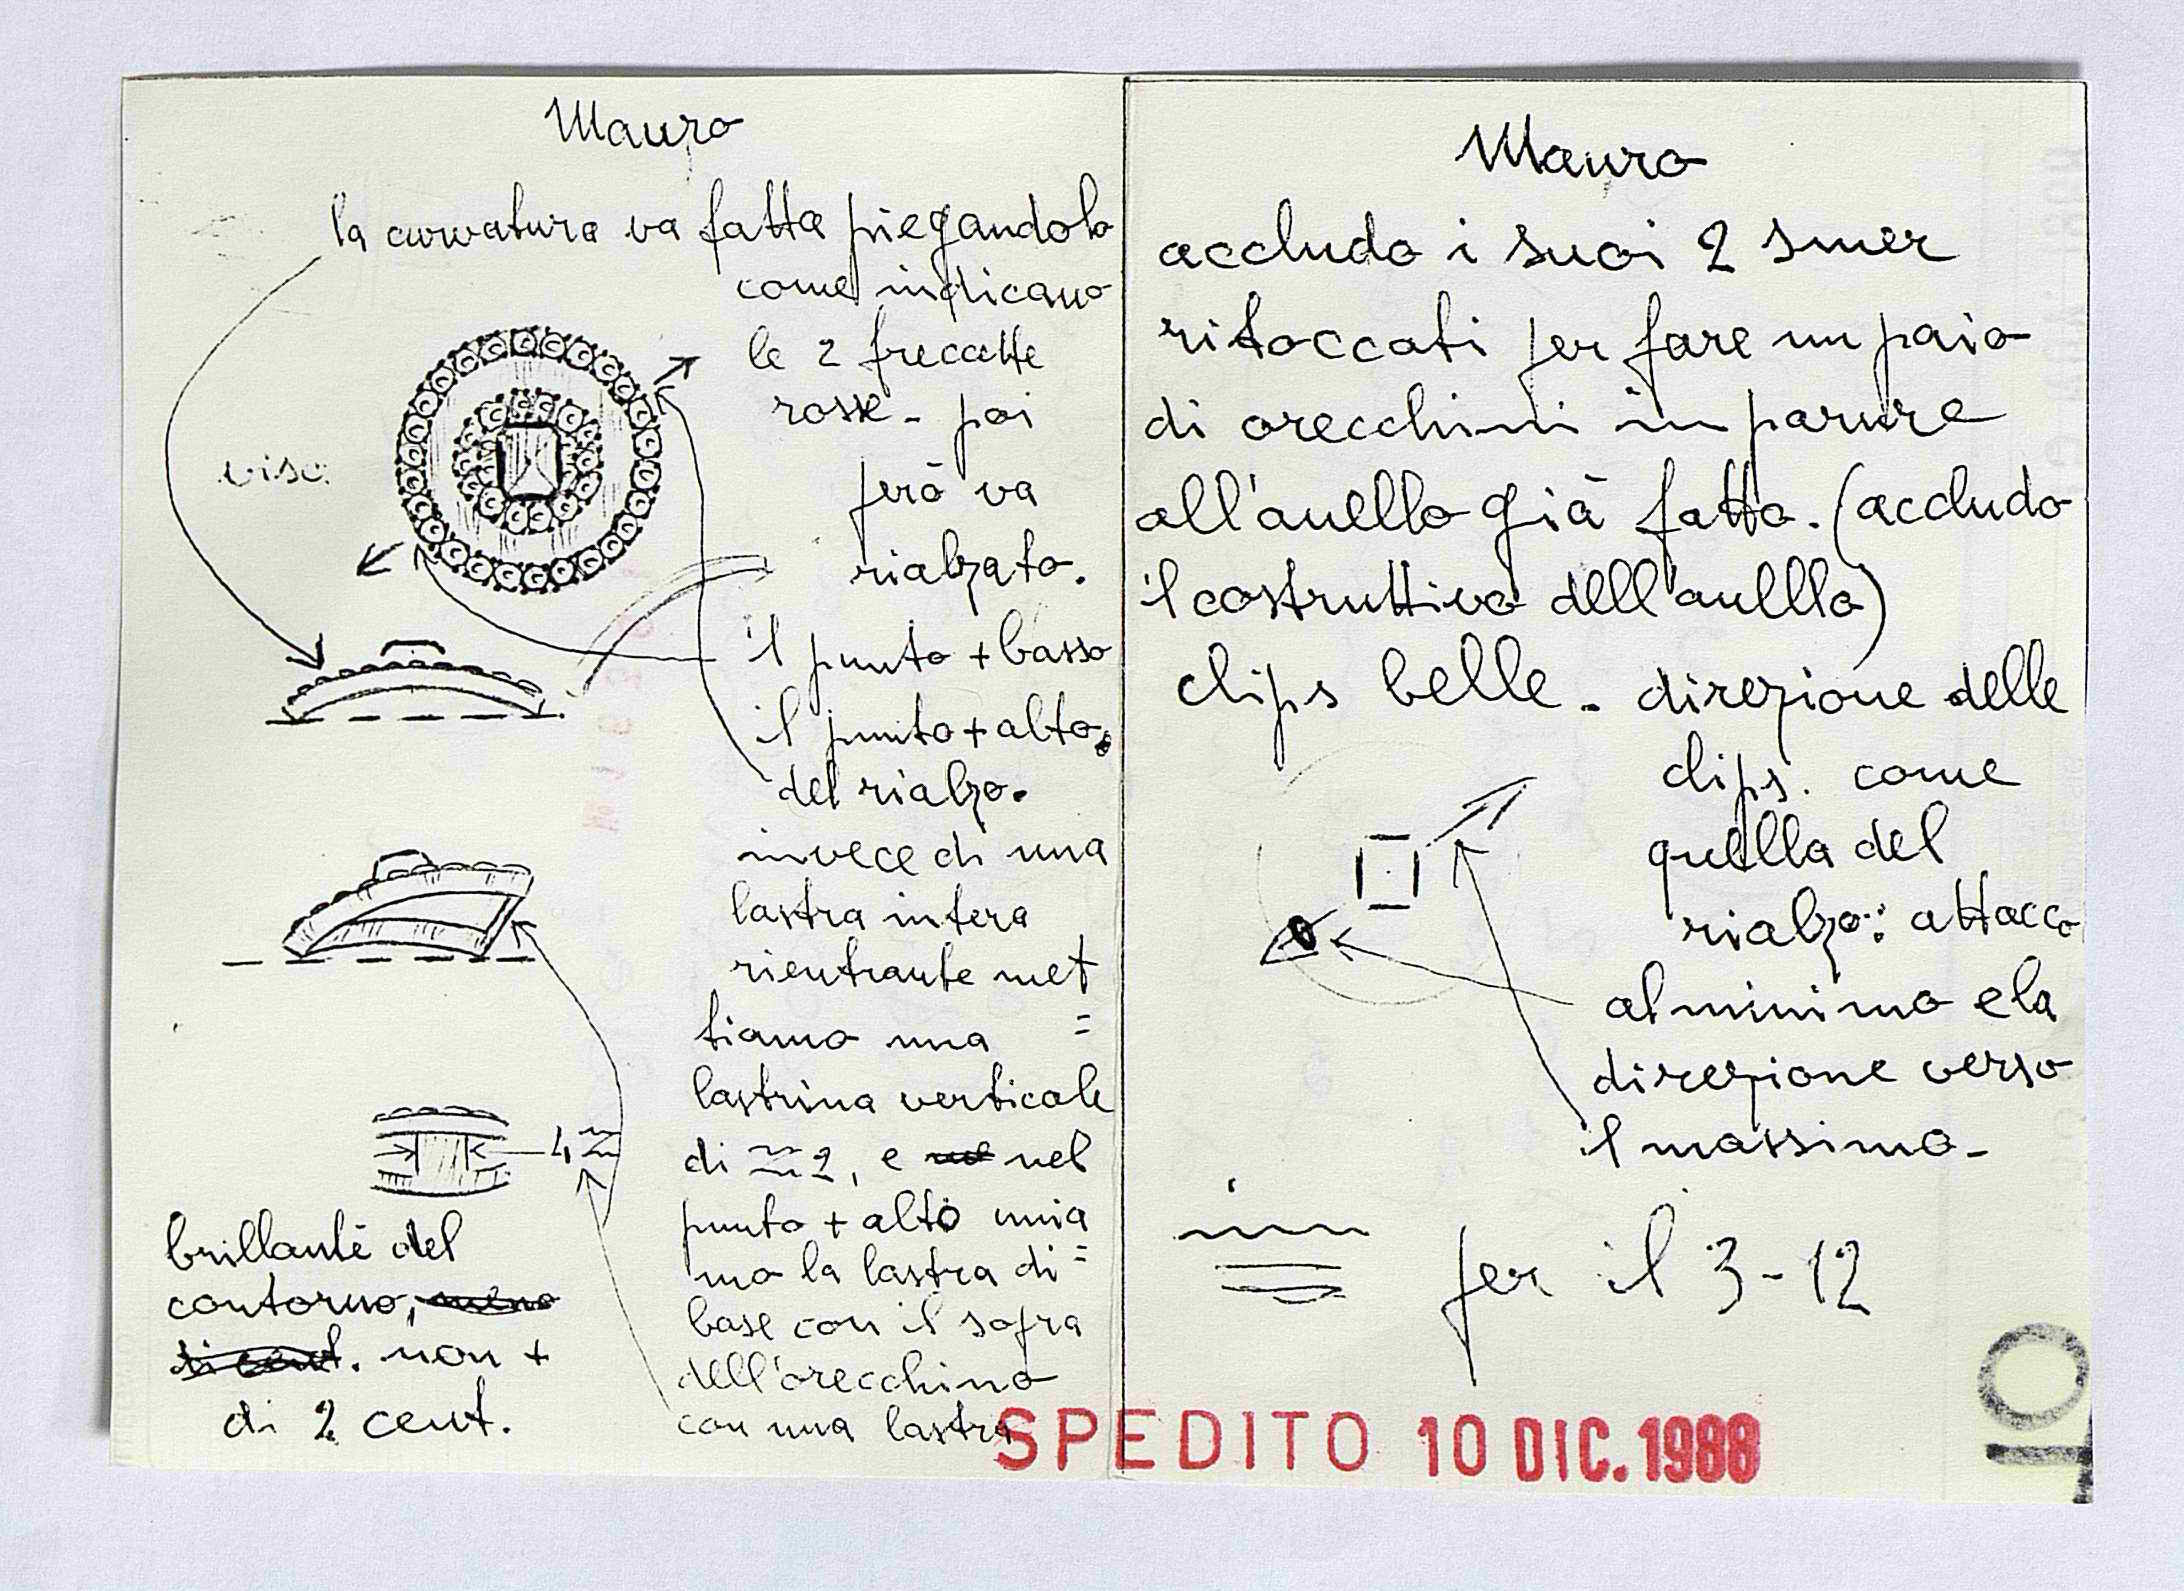 Mauro
la curvatura va fatta piegandola
come indicano
le 2 freccette
rosse - poi
però va
rialzato.
viso
il punto + basso
il punto + alto
del rialzo.
invece di una
lastra intera
rientrante met
tiamo una =
lastrina verticale
di ≈ 2, e nel
punto + alto unia
mo la lastra di =
base con il sopra
dell'orecchino
con una lastra
4 ≈
brillanti del
contorno,
non +
di 2 cent.
Mauro
accludo i suoi 2 smer
ritoccati per fare un paio
di orecchini in parure
all'anello già fatto. (accludo
il costruttivo dell'anello)
clips belle - direzione delle
clips. come
quella del
rialzo: attacco
al minimo e la
direzione verso
il massimo -
per il 3-12
SPEDITO 10 DIC. 1988
10